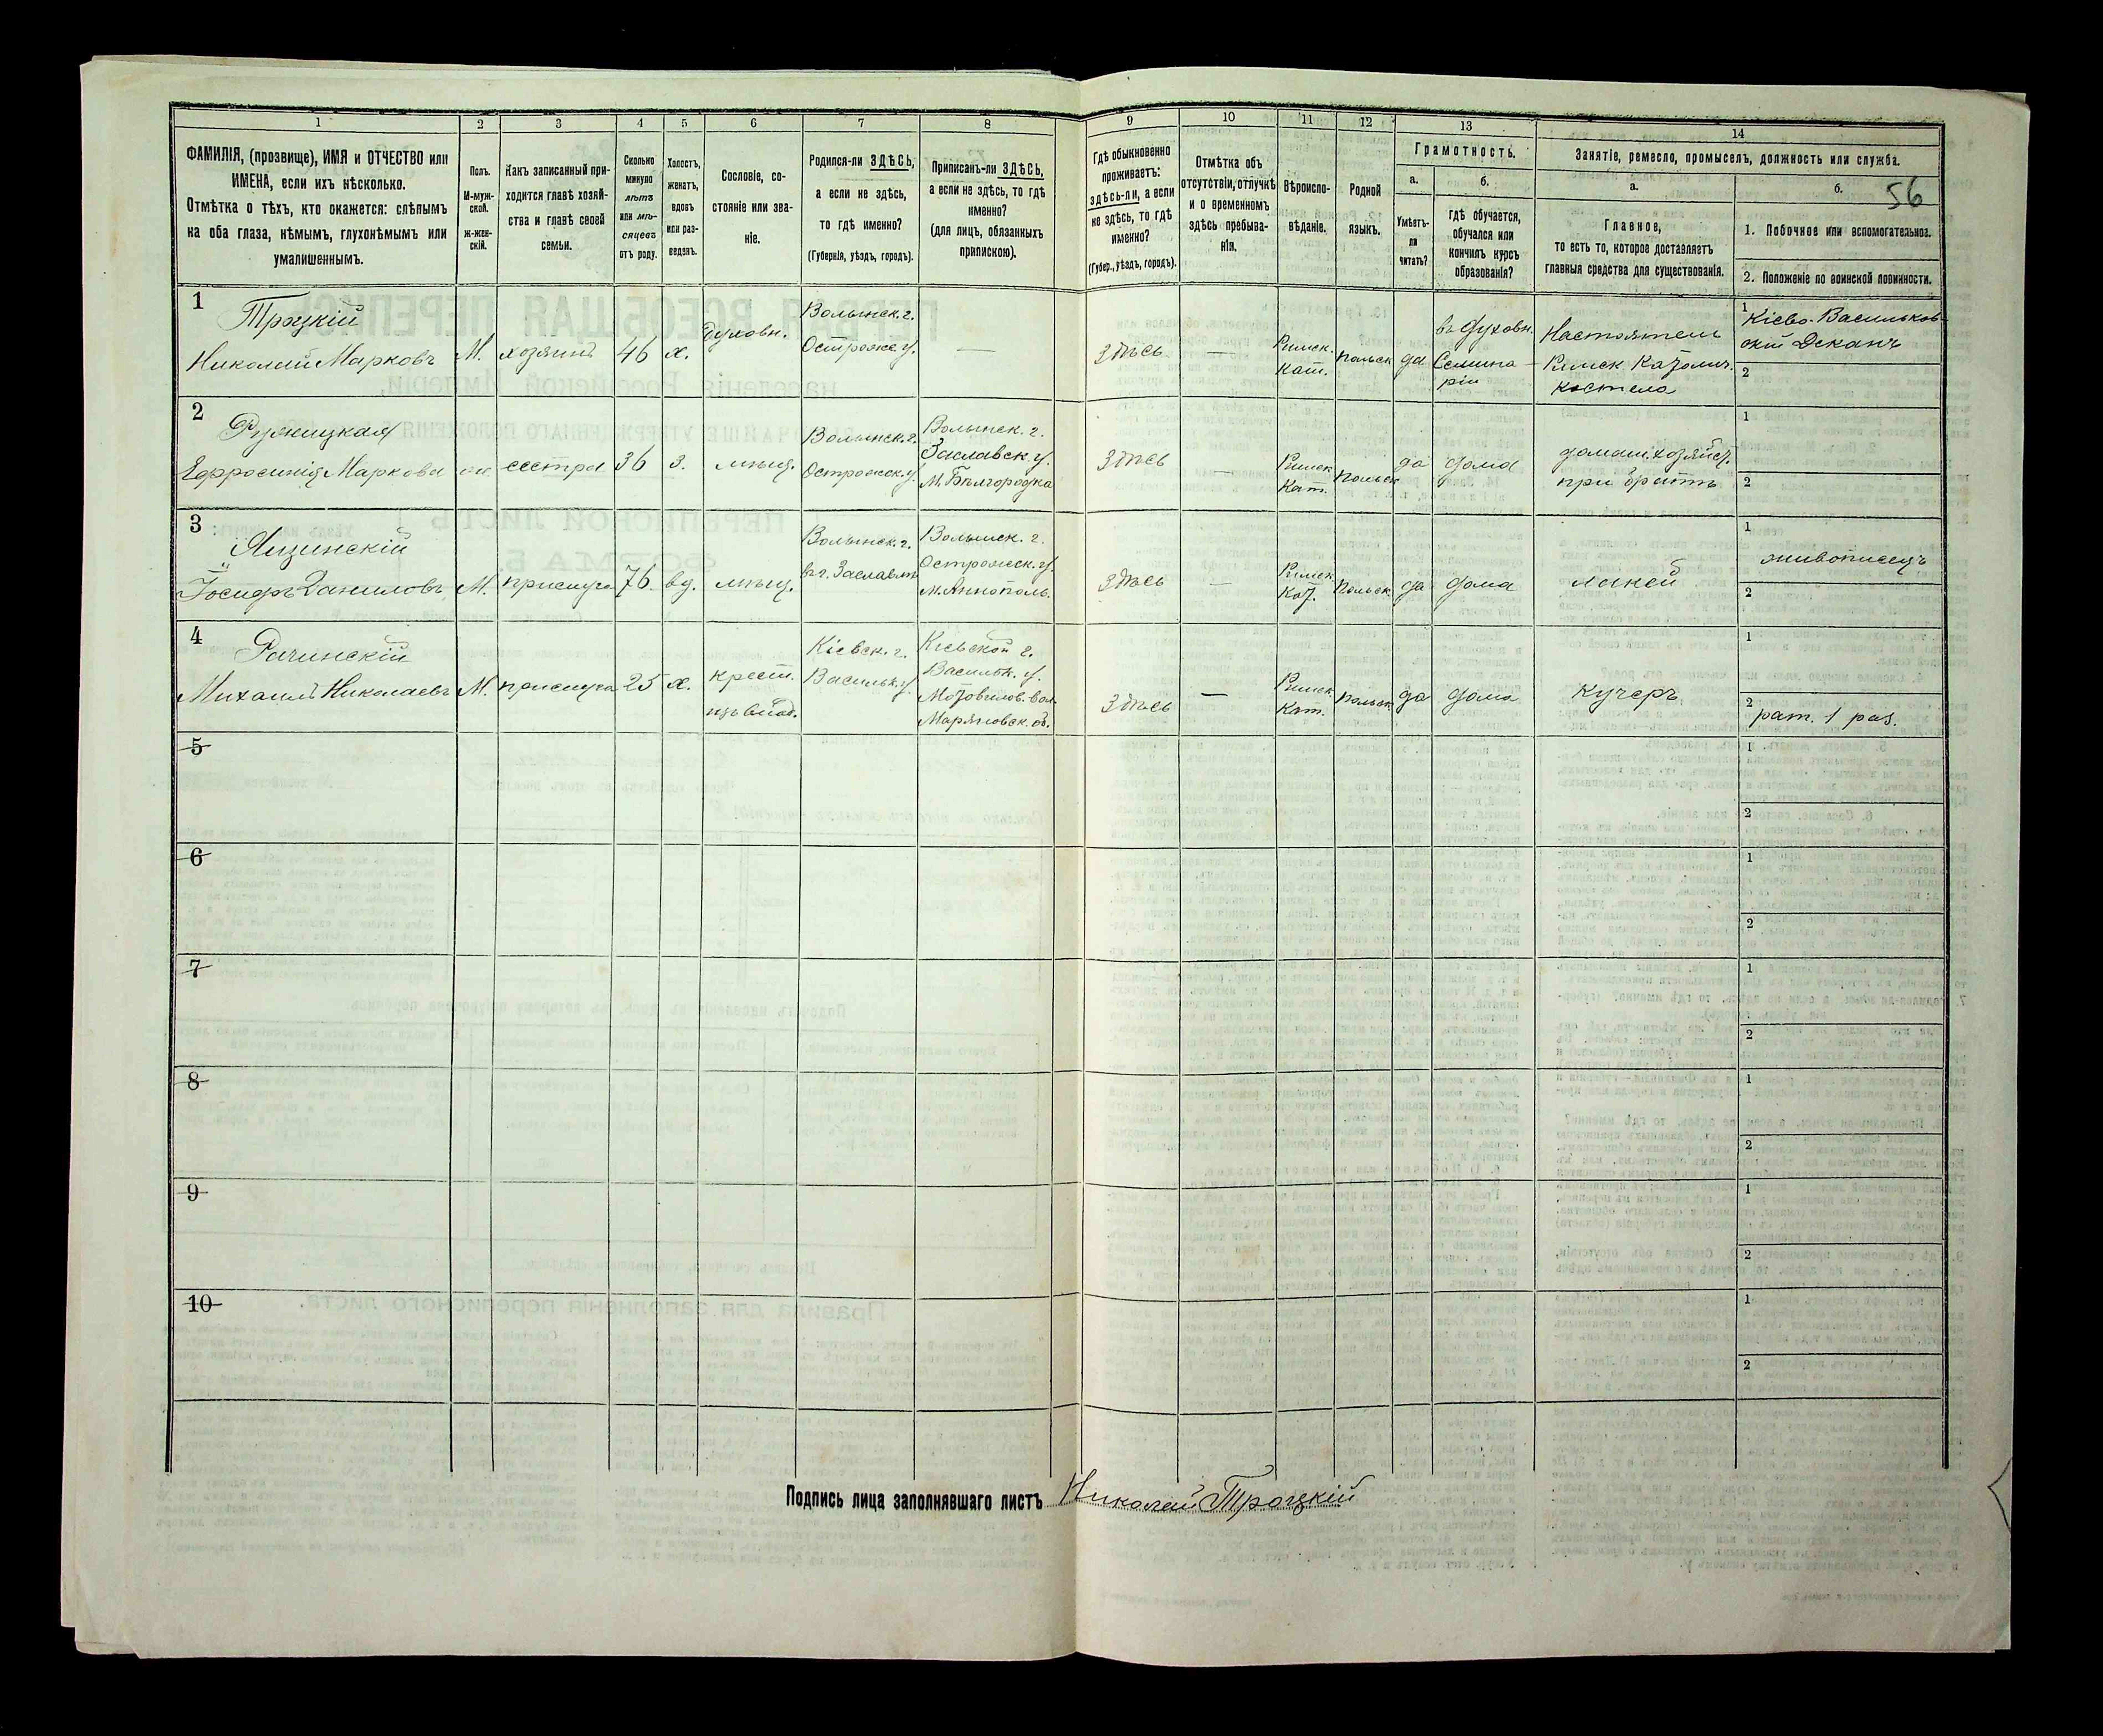 1 2 3 4 5 6 7 8 9 10 11 12 13 14
ФАМИЛІЯ, (прозвище), ИМЯ и ОТЧЕСТВО или
ИМЕНА, если ихъ нѣсколько.
Отмѣтка о тѣхъ, кто окажется: слѣпымъ
на оба глаза, нѣмымъ, глухонѣмымъ или
умалишеннымъ.
Полъ.
М-муж-
ской.
ж-жен-
скій.
Какъ записанный при-
ходится главѣ хозяй-
ства и главѣ своей
семьи.
Сколько
минуло
лѣтъ
или мѣ-
сяцевъ
отъ роду.
Холостъ,
женатъ,
вдовъ
или раз-
веденъ.
Сословіе, со-
стояніе или зва-
ніе.
Родился-ли ЗДѢСЬ,
а если не здѣсь,
то гдѣ именно?
(Губернія, уѣздъ, городъ).
Приписанъ-ли ЗДѢСЬ,
а если не здѣсь, то гдѣ
именно?
(для лицъ, обязанныхъ
припискою).
Гдѣ обыкновенно
проживаетъ:
здѣсь-ли, а если
не здѣсь, то гдѣ
именно?
(Губер., уѣздъ, городъ).
Отмѣтка объ
отсутствіи, отлучкѣ
и о временномъ
здѣсь пребыва-
ніи.
Вѣроиспо-
вѣданіе.
Родной
языкъ.
Грамотность.
а.
Умѣетъ-
ли
читать?
б.
гдѣ обучается,
обучался или
кончилъ курсъ
образованія?
Занятіе, ремесло, промыселъ, должность или служба.
а.
Главное,
то есть то, которое доставляетъ
главныя средства для существованія.
б.
56
1. Побочное или вспомогательное.
2. Положеніе по воинской повинности.
1
Троцкій
Николай Марковъ
М.
хозяинъ
46
х.
Духовн.
Волынск. г.
Острожс. у.
—
здѣсь
—
Римск.
Кат.
польск
да
въ Духовн.
Семина-
ріи
Настоятель
Римск Католич.
костела
1
Кіево-Васильков-
скій Деканъ
2
2
Ружицкая
Ефросинія Маркова
ж.
сестра
36
з.
мѣщ.
Волынск. г.
Острожск. у.
Волынск. г.
Заславск у.
М. Бѣлгородка
здѣсь
—
Римск
Кат.
польск
да
дома
домаш. хозяйст.
при братѣ
1
2
3
Ящинскій
Іосифъ Даниловъ
М.
прислуга
76.
вд.
мѣщ.
Волынск. г.
въ г. Заславлѣ
Волынск. г.
Острожск. у.
м. Аннополь.
здѣсь
—
Римск
Кат.
польск.
да
дома
лакей
1
живописецъ
2
4
Рачинскій
Михаилъ Николаевъ
М.
прислуга
25
х.
крест.
Кіевск. г.
Васильк. у.
Кіевской г.
Васильк. у.
Мотовилов. вол.
Марьяновск. об.
здѣсь
—
Римск
Кат.
польск.
да
дома
Кучеръ
1
2
рат. 1 раз.
5
1
2
6
1
2
7
1
2
8
1
2
9
1
2
10
1
2
Подпись лица заполнявшаго листъ Николай Троцкій